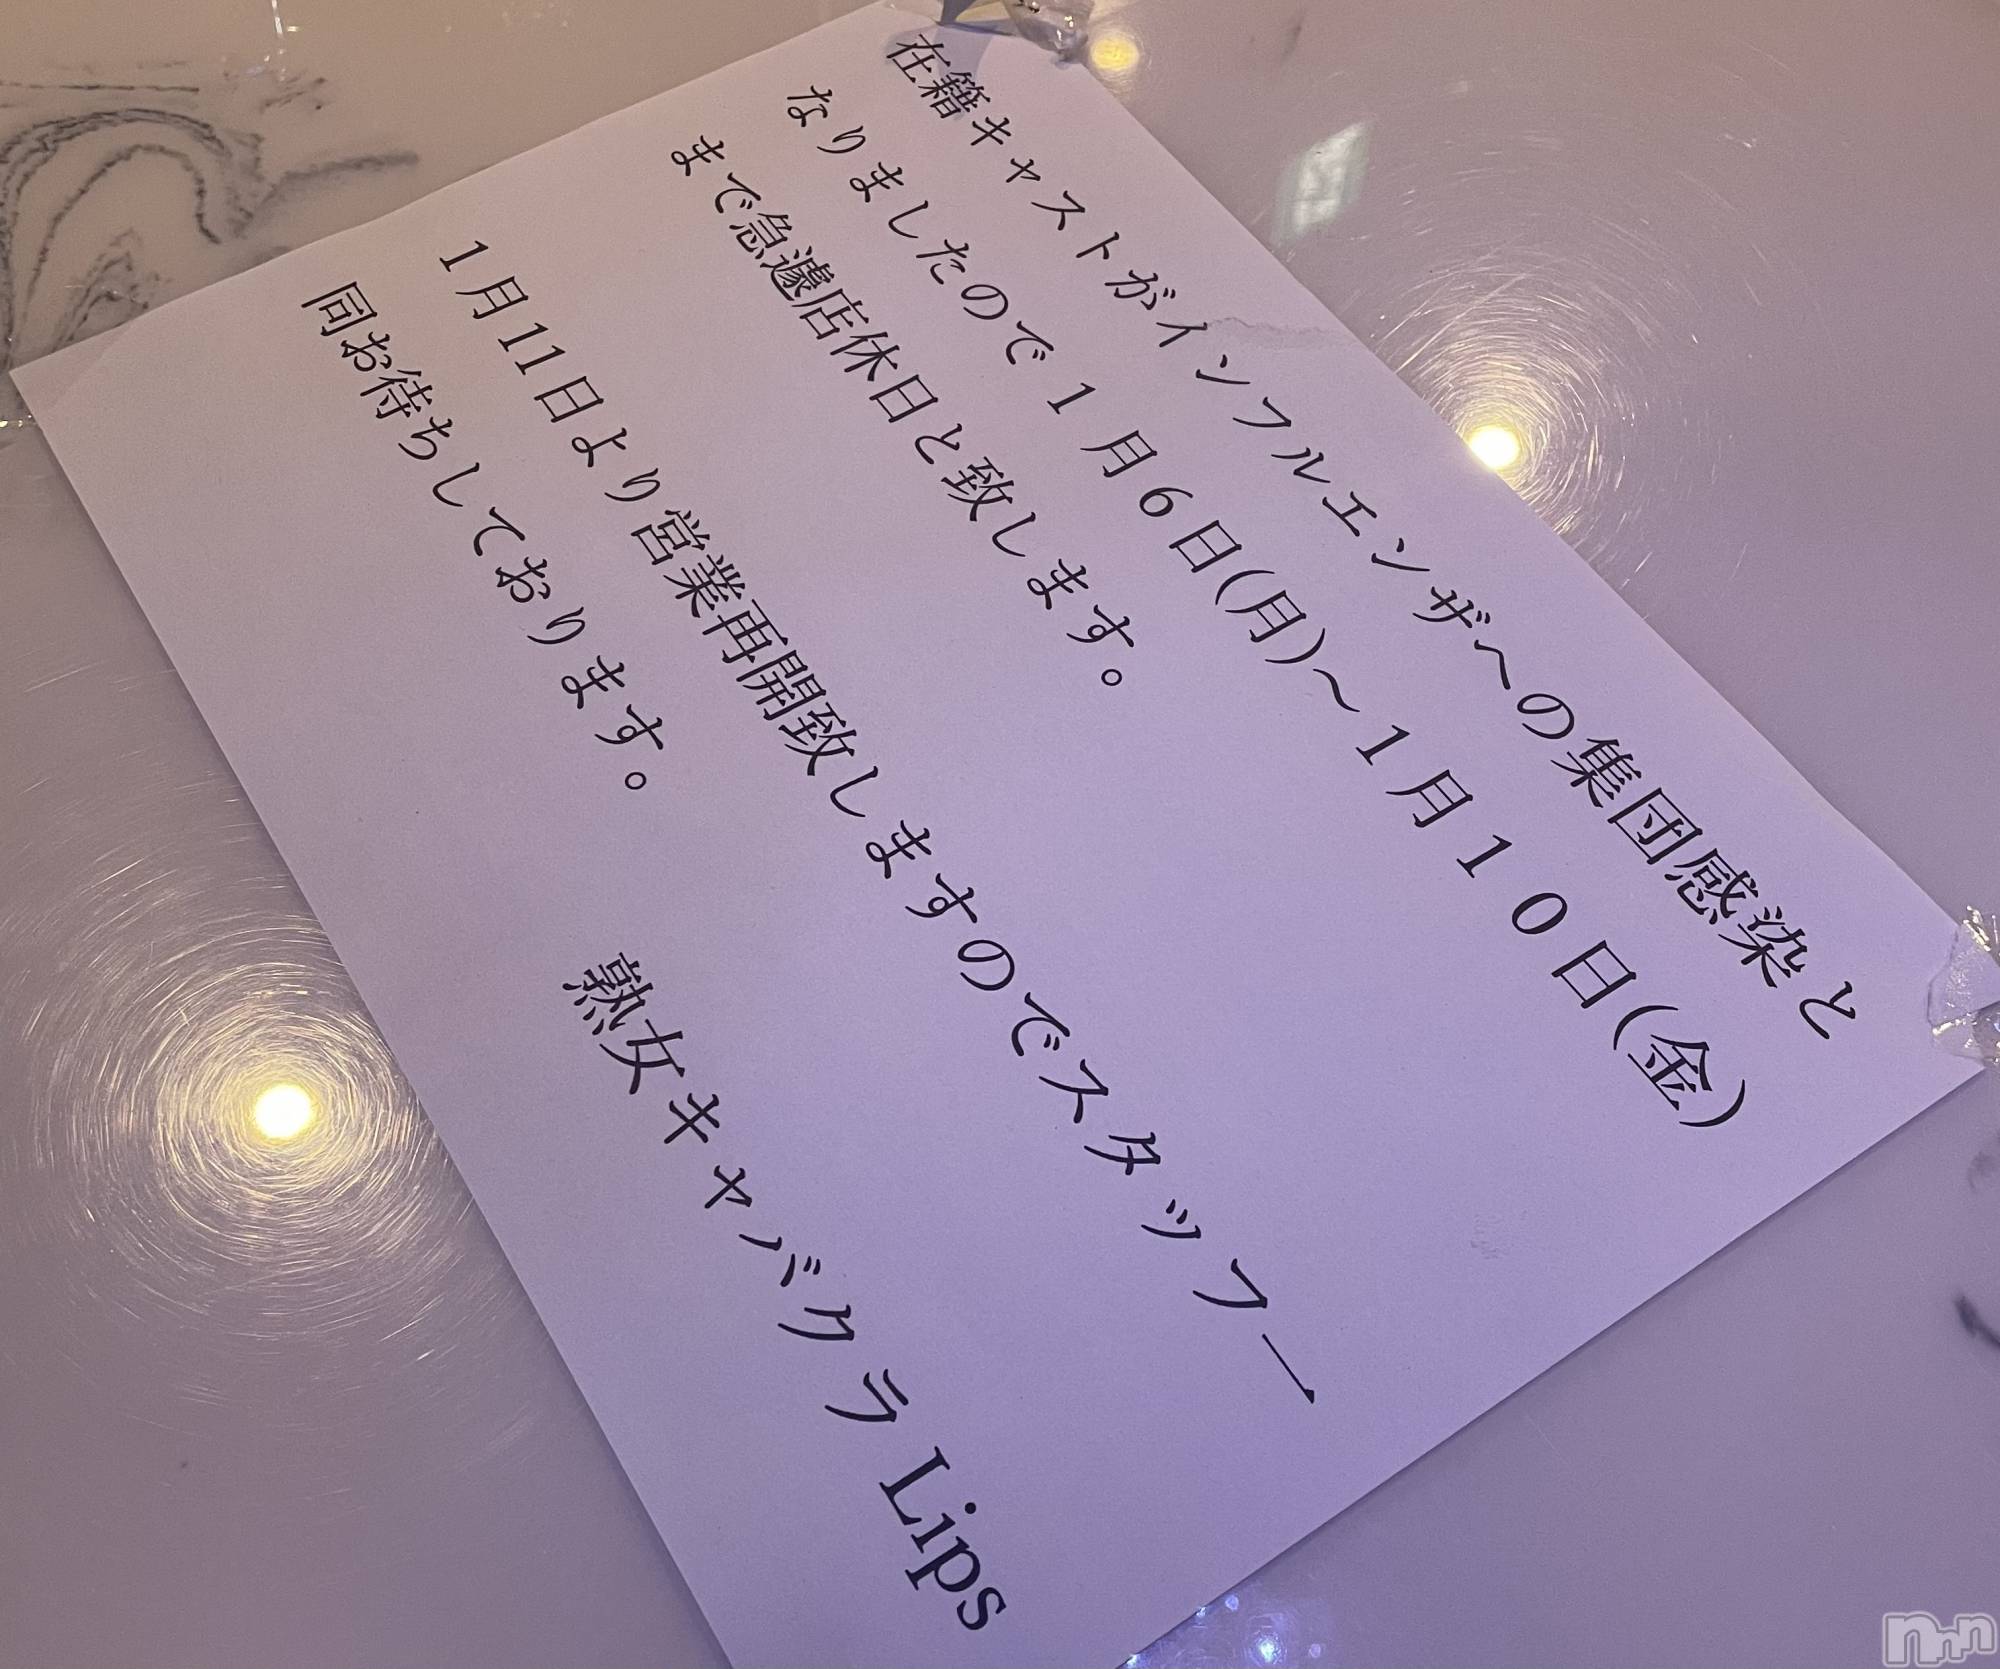 在籍キャストがインフルエンザへの集団感染と
なりましたので１月６日(月)～１月１０日(金)
まで急遽店休日と致します。
１月11日より営業再開致しますのでスタッフ一
同お待ちしております。
熟女キャバクラ Lips
nnn